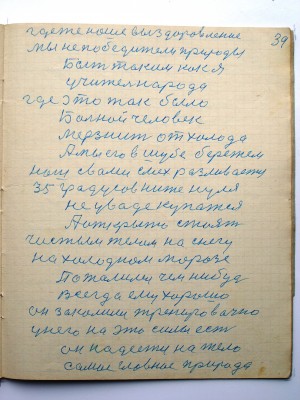 39
где же наше выздоровление
мы непобедители природы
Быт таким как я
учителя народа
где это так было
Болной человек
мерзнит от холода
А мы его в шубе бережем
наш с вами слух развивати
35 градусов ниже нуля
не у ваде купатся
А открыто стоят
чистым телом на снегу
на холодном морозе
Всегда ему хорошо
он закомили тренировачно
у него на это силы ест
он надеети на тело
самое главное природа